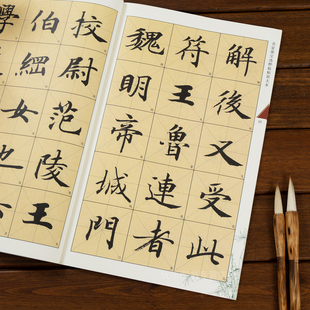 解後又受此
符王魯連者
魏明帝城門
校尉范陵王
伯細女也